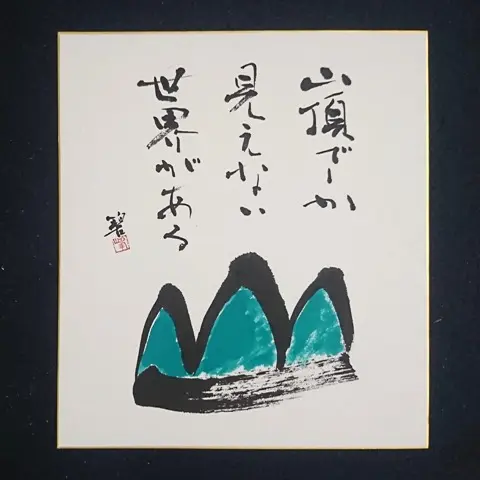 山頂でしか
見えない
世界がある